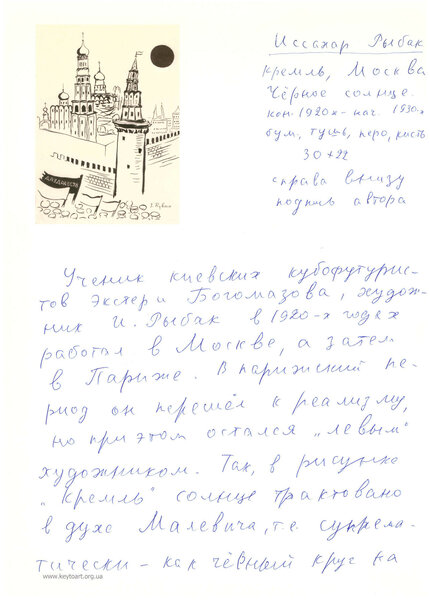 Иссахар Рыбак
Кремль, Москва
Чёрное солнце.
кон. 1920х - нач. 1930х
бум, тушь, перо, кисть
30+22
справа внизу
подпись автора
Ученик киевских кубофутурис-
тов Экстер и Богомазова, худож-
ник И. Рыбак в 1920-х годах
работал в Москве, а затем
в Париже. В парижский пе-
риод он перешёл к реализму,
но при этом остался „левым"
художником. Так, в рисунке
„Кремль" солнце трактовано
в духе Малевича, т.е. супрема-
тически - как чёрный круг на
www.keytoart.org.ua